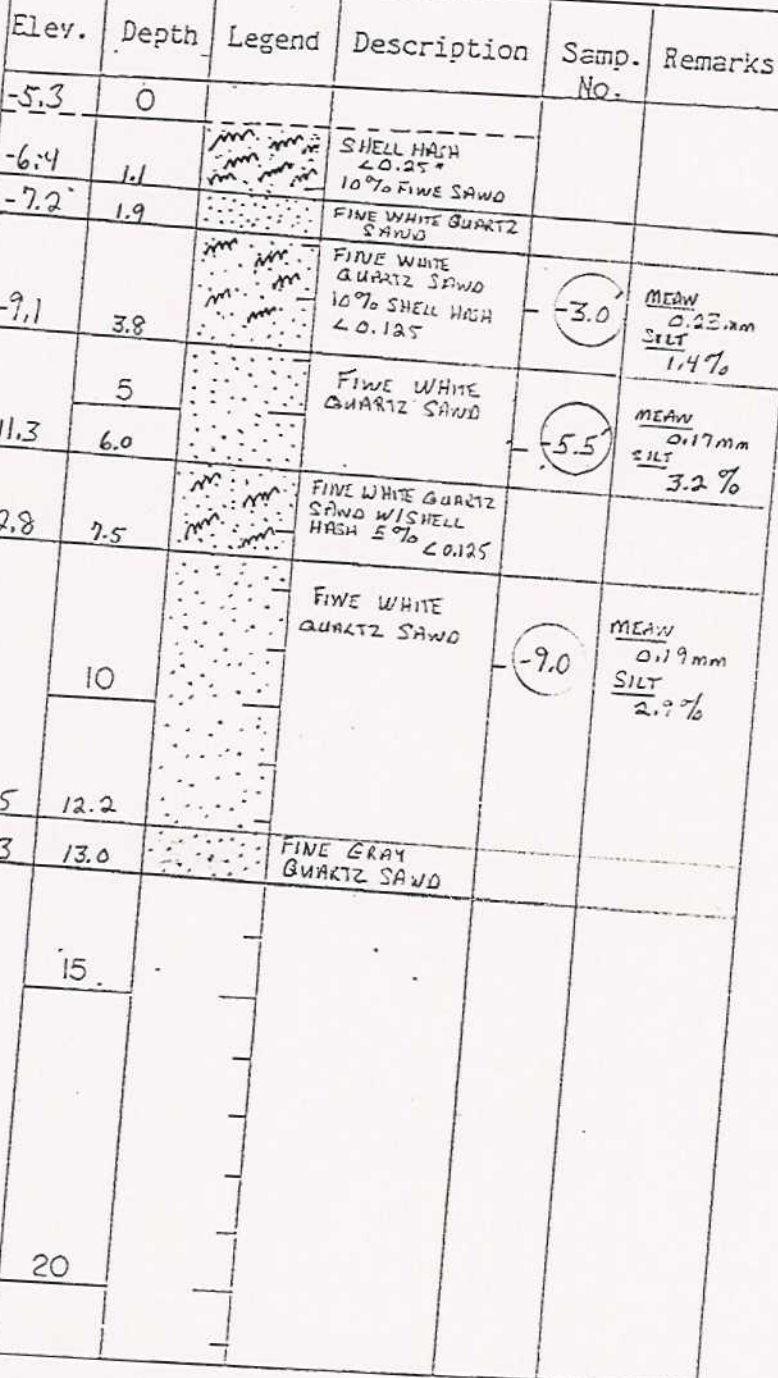 Elev. Depth Legend Description Samp. No. Remarks
-5.3 0
-6.4 1.1 SHELL HASH
<0.25"
10% FINE SAND
-7.2 1.9 FINE WHITE QUARTZ
SAND
FINE WHITE
QUARTZ SAND
10% SHELL HASH
<0.125
-9.1 3.8
-3.0'
MEAN
0.23mm
SILT
1.4%
5
FINE WHITE
QUARTZ SAND
11.3 6.0
-5.5'
MEAN
0.17mm
SILT
3.2%
FINE WHITE QUARTZ
SAND W/SHELL
HASH 5%
<0.125
2.8 7.5
FINE WHITE
QUARTZ SAND
-9.0
MEAN
0.19mm
SILT
2.9%
10
5 12.2
3 13.0 FINE GRAY
QUARTZ SAND
15
20